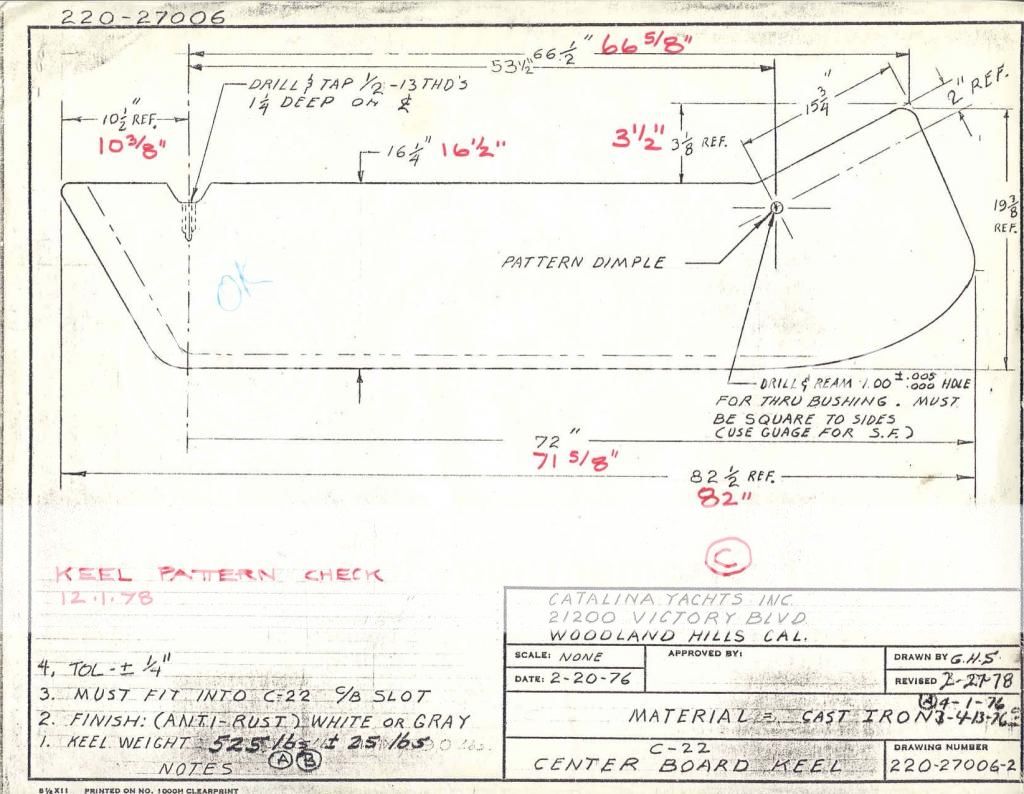 220-27006
66 1/2" 66 5/8"
53 1/2"
DRILL & TAP 1/2-13 THD'S
1 1/4 DEEP ON ℄
10 1/2" REF.
10 3/8"
16 1/4" 16 1/2"
3 1/2" 3 1/8 REF.
15 3/4"
2" REF.
19 3/8
REF.
PATTERN DIMPLE
OK
DRILL & REAM 1.00 ±.005 .000 HOLE
FOR THRU BUSHING. MUST
BE SQUARE TO SIDES
(USE GUAGE FOR S.F.)
72"
71 5/8"
82 1/2 REF.
82"
C
KEEL PATTERN CHECK
12.1.78
4. TOL - ± 1/4"
3. MUST FIT INTO C-22 C/B SLOT
2. FINISH: (ANTI-RUST) WHITE OR GRAY
1. KEEL WEIGHT 525 lbs ± 25 lbs
A B
NOTES
CATALINA YACHTS INC.
21200 VICTORY BLVD
WOODLAND HILLS CAL.
SCALE: NONE
APPROVED BY:
DRAWN BY G.H.S.
DATE: 2-20-76
REVISED 2-27-78
A 4-1-76
MATERIAL = CAST IRON
C-22
CENTER BOARD KEEL
DRAWING NUMBER
220-27006-2
8½X11 PRINTED ON NO. 1000H CLEARPRINT